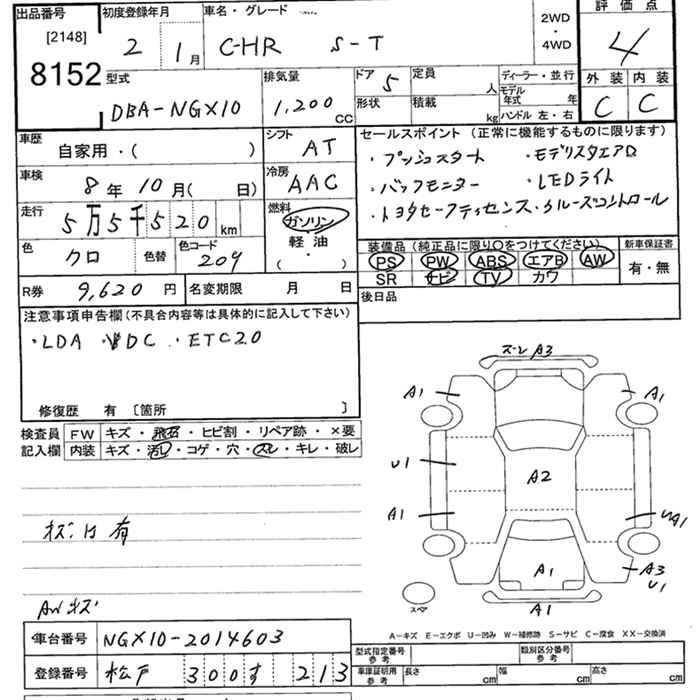 出品番号 初度登録年月 車名・グレード 2WD ・ 4WD 評価点
[2148] 2 1月 C-HR S-T 4
8152
型式 排気量 ドア 定員 ディーラー・並行 外装 内装
DBA-NGX10 1,200 CC 5 人 モデル年式 年 C C
形状 積載 kg ハンドル 左・右
車歴 シフト セールスポイント (正常に機能するものに限ります)
自家用・( ) AT ・プッシュスタート ・モデリスタエアロ
車検 冷房 ・バックモニター ・LEDライト
8年 10月( 日) AAC ・トヨタセーフティセンス・クルーズコントロール
走行 燃料
5万5千520km ガソリン
軽油
・
( )
装備品 (純正品に限り○をつけてください) 新車保証書
色 色替 色コード PS PW ABS エアB AW 有・無
クロ 209 SR ナビ TV カワ
R券 9,620円 名変期限 月 日 後日品
注意事項申告欄(不具合内容等は具体的に記入して下さい)
・LDA ・DC ・ETC2.0
修復歴 有 〔箇所 〕
検査員 FW キズ・飛石・ヒビ割・リペア跡・×要
記入欄 内装 キズ・汚レ・コゲ・穴・スレ・キレ・破レ
有
AWキズ
ズレ A3
A1 A1
U1 A2
A1 UA1
A1 A3
U1
A1
スペア
A−キズ E−エクボ U−凹み W−補修跡 S−サビ C−腐食 XX−交換済
車台番号 NGX10-2014603
登録番号 松戸 300す 213
型式指定番号 参考 類別区分番号 参考
車庫証明用 参考 長さ cm 幅 cm 高さ cm